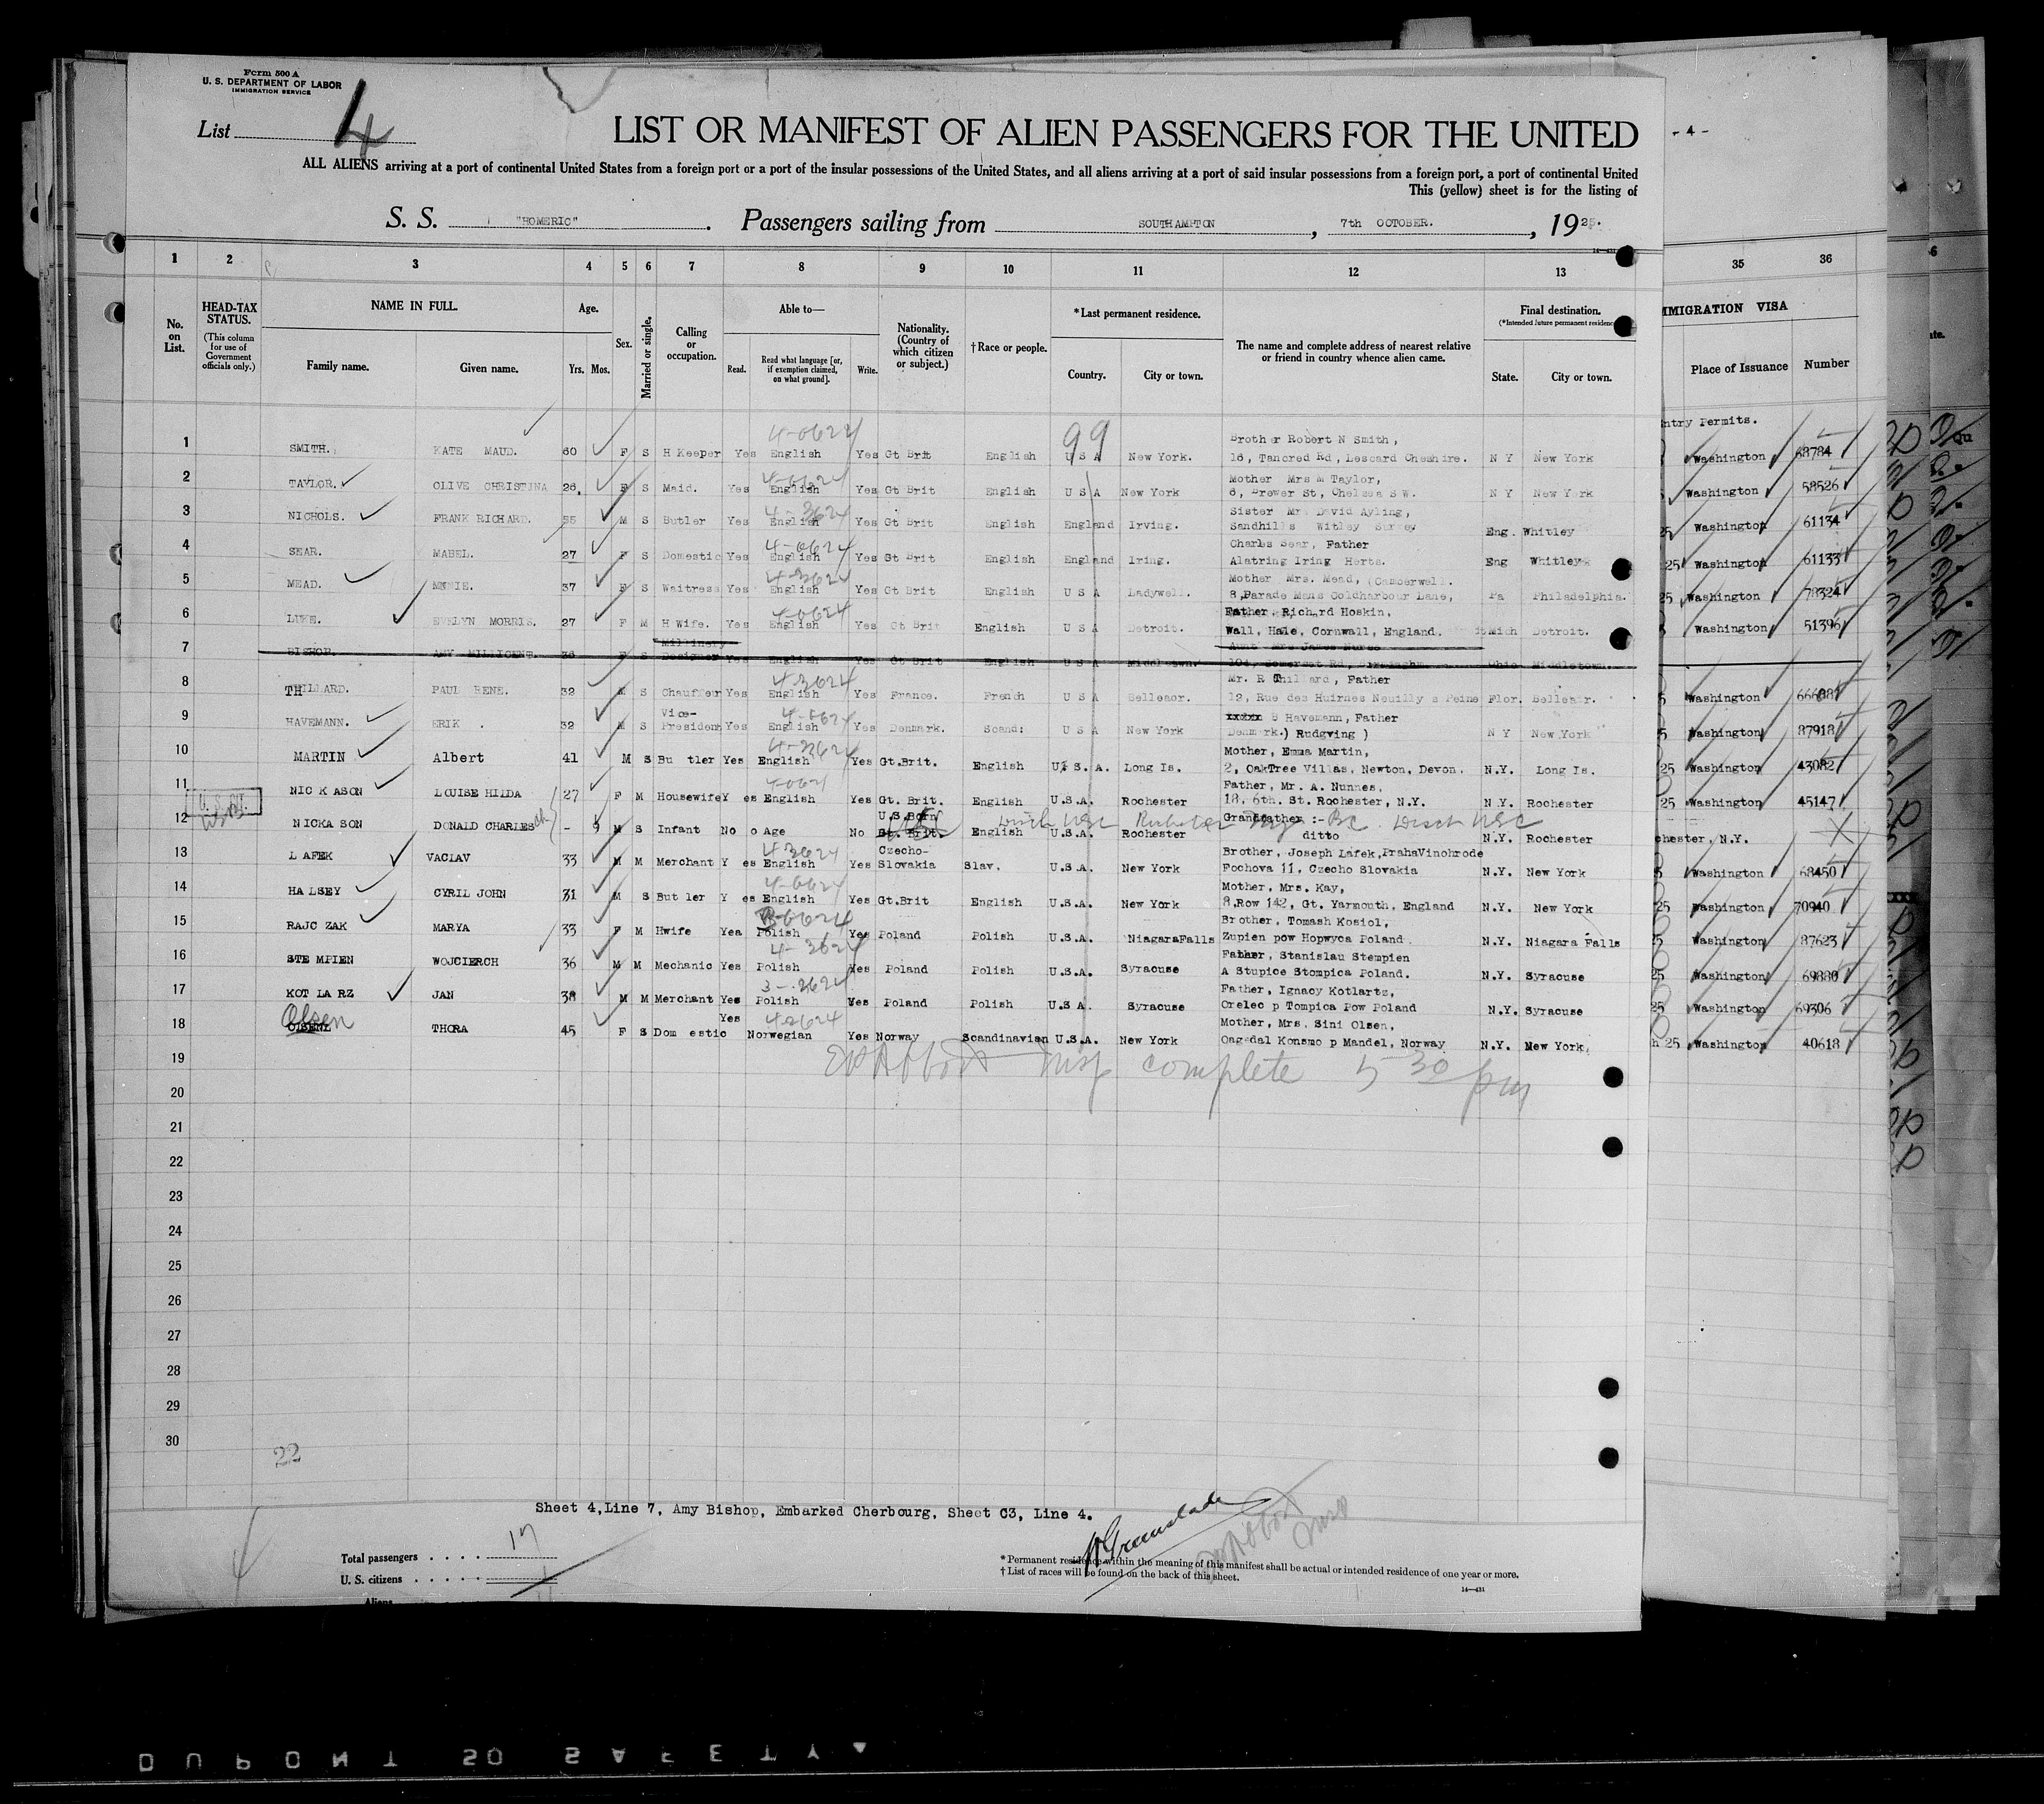 Form 500 A
U. S. DEPARTMENT OF LABOR
IMMIGRATION SERVICE
List 4
LIST OR MANIFEST OF ALIEN PASSENGERS FOR THE UNITED
- 4 -
ALL ALIENS arriving at a port of continental United States from a foreign port or a port of the insular possessions of the United States, and all aliens arriving at a port of said insular possessions from a foreign port, a port of continental United
This (yellow) sheet is for the listing of
S. S. "HOMERIC". Passengers sailing from SOUTHAMPTON, 7th OCTOBER., 1925.
1 2 3 4 5 6 7 8 9 10 11 12 13 35 36
No. on List.
HEAD-TAX STATUS.
(This column for use of Government officials only.)
NAME IN FULL.
Family name. Given name.
Age.
Yrs. Mos.
Sex.
Married or single.
Calling or occupation.
Able to—
Read. Read what language [or, if exemption claimed, on what ground]. Write.
Nationality. (Country of which citizen or subject.)
†Race or people.
*Last permanent residence.
Country. City or town.
The name and complete address of nearest relative or friend in country whence alien came.
Final destination.
(*Intended future permanent residence)
State. City or town.
MMIGRATION VISA
Place of Issuance Number
ntry Permits.
99
1 SMITH. KATE MAUD. 60 F S H Keeper Yes English 4-0624 Yes Gt Brit English U S A New York. Brother Robert N Smith, 16, Tancred Rd, Lescard Cheshire. N Y New York Washington 68784
2 TAYLOR. OLIVE CHRISTINA 26. F S Maid. Yes English 4-0624 Yes Gt Brit English U S A New York Mother Mrs M Taylor, 6, Brewer St, Chelsea S W. N Y New York Washington 58526
3 NICHOLS. FRANK RICHARD. 55 M S Butler Yes English 4-3624 Yes Gt Brit English England Irving. Sister Mrs David Ayling, Sandhills Witley Surrey Eng. Whitley 25 Washington 61134
4 SEAR. MABEL. 27 F S Domestic Yes English 4-0624 Yes Gt Brit English England Iring. Charles Sear, Father Alatring Iring Herts. Eng Whitley 25 Washington 61133
5 MEAD. ANNIE. 37 F S Waitress Yes English 4-3624 Yes Gt Brit English U S A Ladywell. Mother Mrs. Mead, (Camberwell. 8,Parade Mans Coldharbour Lane, Pa Philadelphia. 25 Washington 78324
6 LUKE. EVELYN MORRIS. 27 F M H Wife. Yes English 4-0624 Yes Gt Brit English U S A Detroit. Father, Richard Hoskin, Wall, Hale, Cornwall, England. Mich Detroit. Washington 51396
7 BISHOP. AMY MILLICENT. 36 F S Millinery Designer Yes English Yes Gt Brit English U S A Middletown Aunt Mrs James Nurse 104, Somerset Rd, Birmingham. Ohio Middletown.
8 THILLARD. PAUL RENE. 32 M S Chauffeur Yes English 4-3624 Yes France. French U S A Belleaor. Mr. R Thillard, Father 12, Rue des Huirnes Neuilly s Peine Flor. Belleair. Washington 66688
9 HAVEMANN. ERIK . 32 M S Vice-President Yes English 4-0624 Yes Denmark. Scand: U S A New York Havemann, Father Denmark.) Rudgving ) N Y New York Washington 87918
10 MARTIN Albert 41 M S Bu tler Yes English 4-3624 Yes Gt.Brit. English U.S. A. Long Is. Mother, Emma Martin, 2, OakTree Villas, Newton, Devon. N.Y. Long Is. 25 Washington 43082
11 NIC K ASON LOUISE HILDA 27 F M Housewife Y es English Yes Gt. Brit. English U.S.A. Rochester Father, Mr. A. Nunnes, 18, 6th. St. Rochester, N.Y. N.Y. Rochester 25 Washington 45147
12 NICKA SON DONALD CHARLES - 9 M S Infant No o Age No U.S.Born Gt. Brit. English U.S.A. Rochester Grandfather :- ditto N.Y. Rochester chester, N.Y.
13 L AFEK VACLAV 33 M M Merchant Y es English 4-3624 Yes Czecho-Slovakia Slav. U.S.A. New York Brother, Joseph Lafek,PrahaVinohrode Fochova 11, Czecho Slovakia N.Y. New York Washington 68450
14 HA LSEY CYRIL JOHN 31 M S But ler Y es English 4-0624 Yes Gt.Brit English U.S.A. New York Mother, Mrs. Kay, 8,Row 142, Gt. Yarmouth, England N.Y. New York 25 Washington 70940
15 RAJC ZAK MARYA 33 F M Hwife Yea Polish Yes Poland Polish U.S.A. NiagaraFalls Brother, Tomash Kosiol, Zupien pow Hopwyca Poland N.Y. Niagara Falls Washington 87623
16 STE MPIEN WOJCIERCH 36 M M Mechanic Yes Polish 4-3624 Yes Poland Polish U.S.A. Syracuse Father, Stanislau Stempien A Stupice Stompica Poland. N.Y. Syracuse 25 Washington 69880
17 KOT LA RZ JAN 38 M M Merchant Yes Polish 3-3624 Yes Poland Polish U.S A. Syracuse Father, Ignacy Kotlartz, Orelec p Tompica Pow Poland N.Y. Syracuse 25 Washington 69306
18 Olsen THORA 45 F S Dom estic Yes Norwegian 4-2624 Yes Norway Scandinavian U.S.A. New York Mother, Mrs. Sini Olsen, Oagedal Konsmo p Mandel, Norway N.Y. New York. h 25 Washington 40618
19 Insp complete 5 30 pm
20
21
22
23
24
25
26
27
28
29
30
22
Sheet 4,Line 7, Amy Bishop, Embarked Cherbourg, Sheet C3, Line 4.
Total passengers . . . . 17
U. S. citizens . . . . .
Aliens
* Permanent residence within the meaning of this manifest shall be actual or intended residence of one year or more.
† List of races will be found on the back of this sheet.
14—431
DUPONT 50 SAFETY